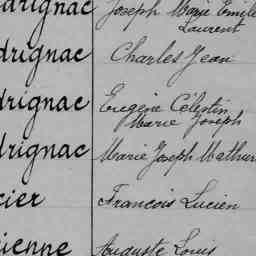 drignac Joseph Marie Emile
Laurent
drignac Charles Jean
drignac Eugène Célestin
Marie Joseph
drignac Marie Joseph Mathur
cier Francois Lucien
ienne Auguste Louis